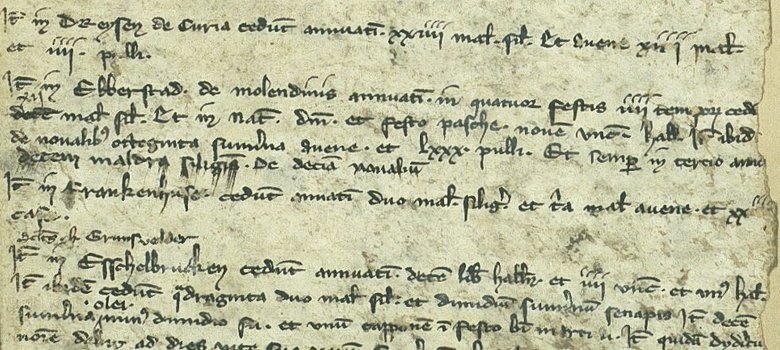 It in Dreysen de Curia cedūt annuati. xxiiii mal. sil. Et avene xiiii mal.
et iiii. pulli.
It in Ebberstad. de molendinis annuati. in quatuor festis iiii tempor cedūt
decē mal sil. Et in Nat. dni. et festo pasche. novē unc. hall. It ibid
de novalib octoginta sumna avene. et lxxx. pulli. Et semp in tercio anno
decem maldra siliginis. De decia novaliū
It in Frankenhuse. cedunt. annuati duo mal silig. et tia mal avene. et xx
cas.
h Grunsvelder
It in Esschelbrucken cedūt annuati. decē lib hallr. et iiii unc. et un hal.
It ibidē cedūt qdraginta duo mal sil. et dimidiū sumnū senapis It decē
olei
sumna min dimidio su. et unū capponē i festo bti martini. It quidā